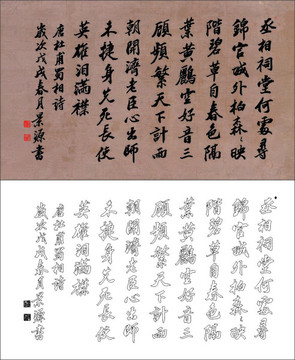 丞相祠堂何處尋
錦官城外柏森々映
階碧草自春色隔
葉黃鸝空好音三
顧頻繁天下計兩
朝開濟老臣心出師
未捷身先死長使
英雄泪滿襟
唐杜甫蜀相詩
歲次戊戌春月景源書
丞相祠堂何處尋
錦官城外柏森々映
階碧草自春色隔
葉黃鸝空好音三
顧頻繁天下計兩
朝開濟老臣心出師
未捷身先死長使
英雄泪滿襟
唐杜甫蜀相詩
歲次戊戌春月景源書